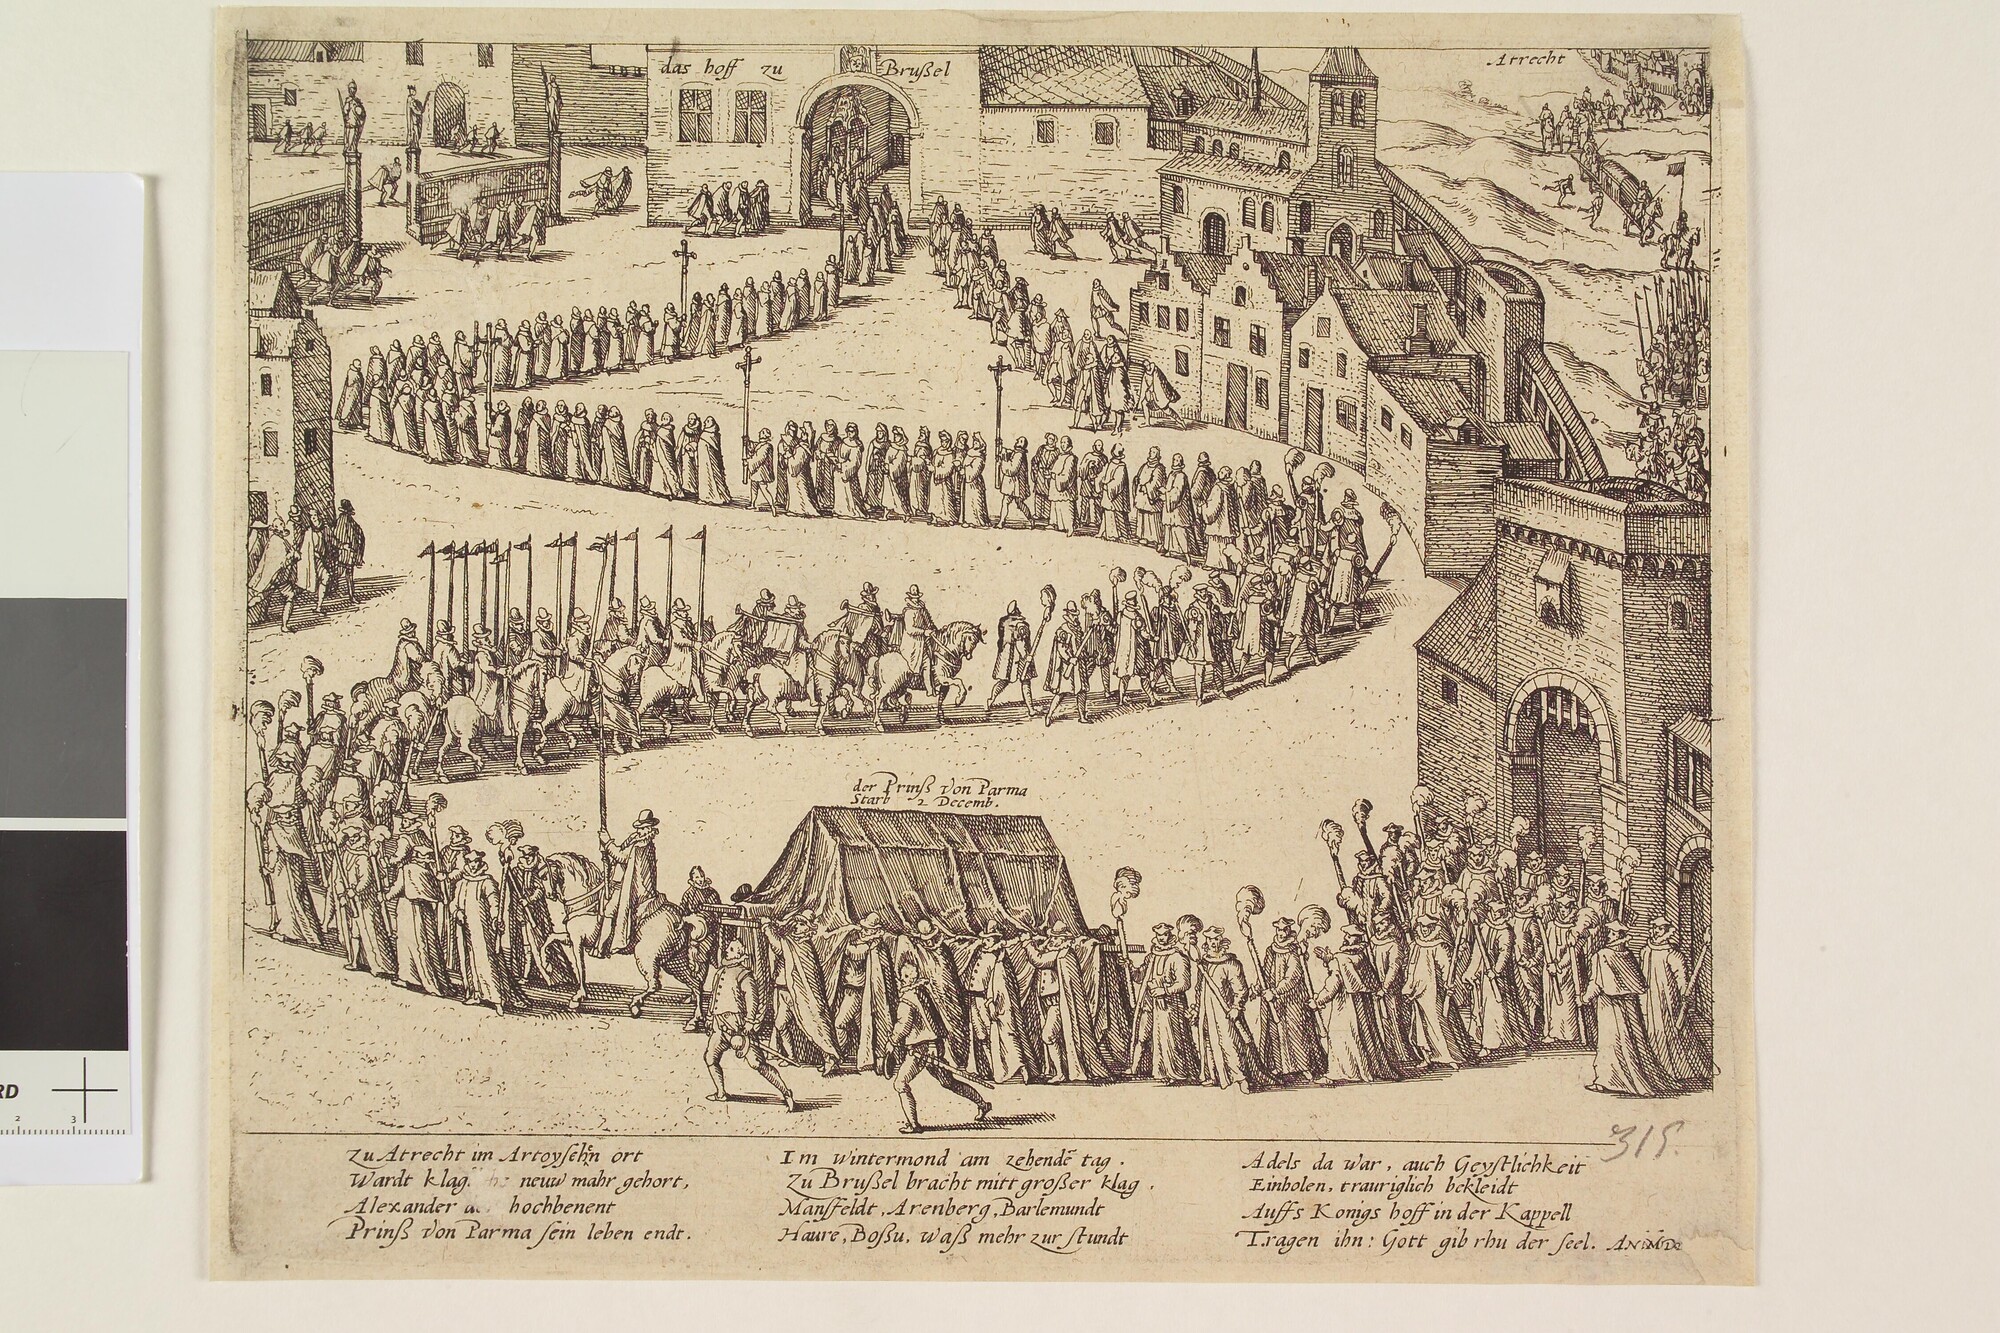 das hoff zu Brußel
Atrecht
der Prinß von Parma
Starb 2 Decemb.
Zu Atrecht im Artoyschen ort
Wardt klag neuw mahr gehort,
Alexander hochbenent
Prinß von Parma sein leben endt.
Im wintermond am zehendē tag.
Zu Brußel bracht mitt großer klag,
Mansfeldt, Arenberg, Barlemundt
Haure, Boßu, waß mehr zur stundt
Adels da war, auch Geystlichkeit
Einholen, trauriglich bekleidt
Auffs Konigs hoff in der Kappell
Tragen ihn: Gott gib rhu der seel.
319.
RD
2 3